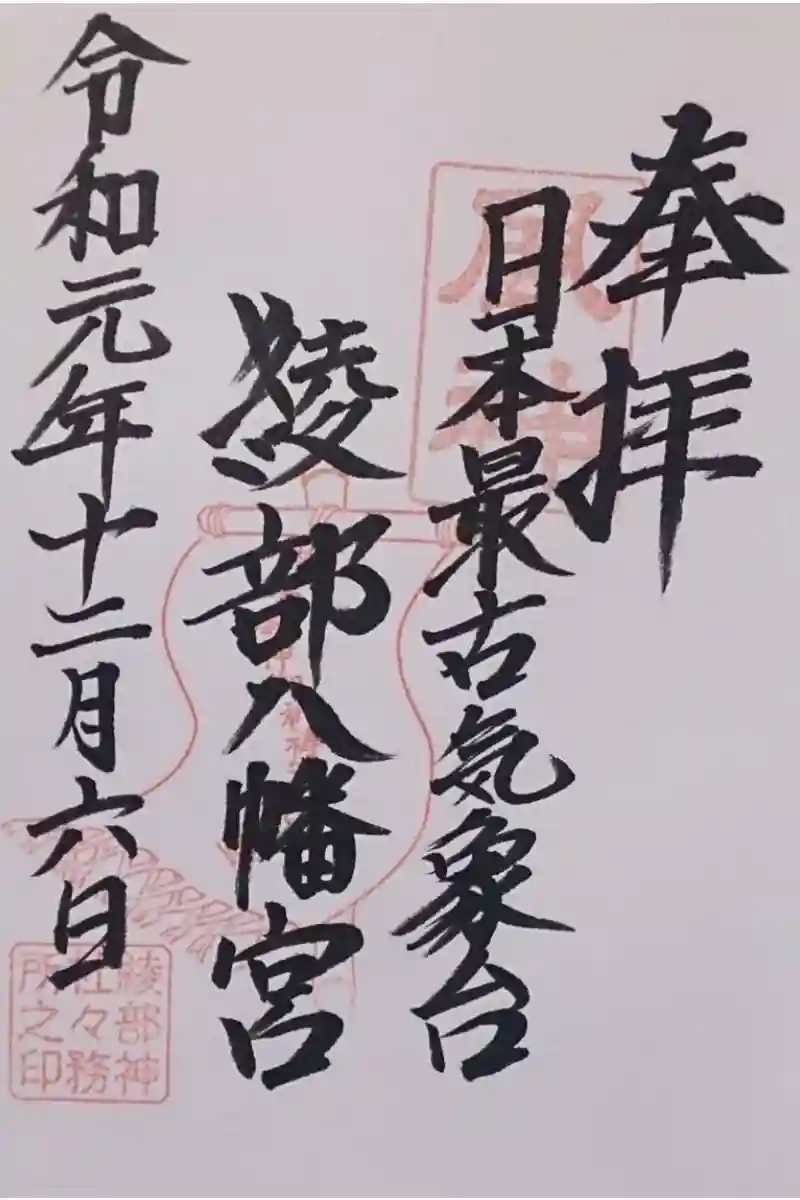 奉拝
日本最古気象台
風神
綾部八幡宮
令和元年十二月六日
綾部神
社々務
所之印